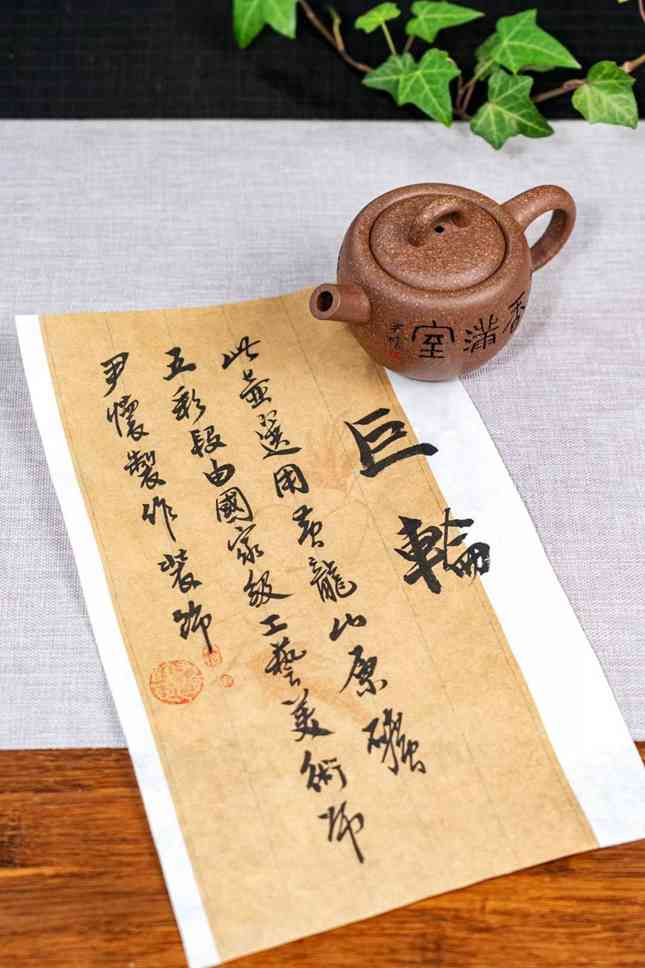 巨輪
此壺選用黄龍山原礦
五彩段由國家級工藝美術師
尹懷製作裝飾
香滿室